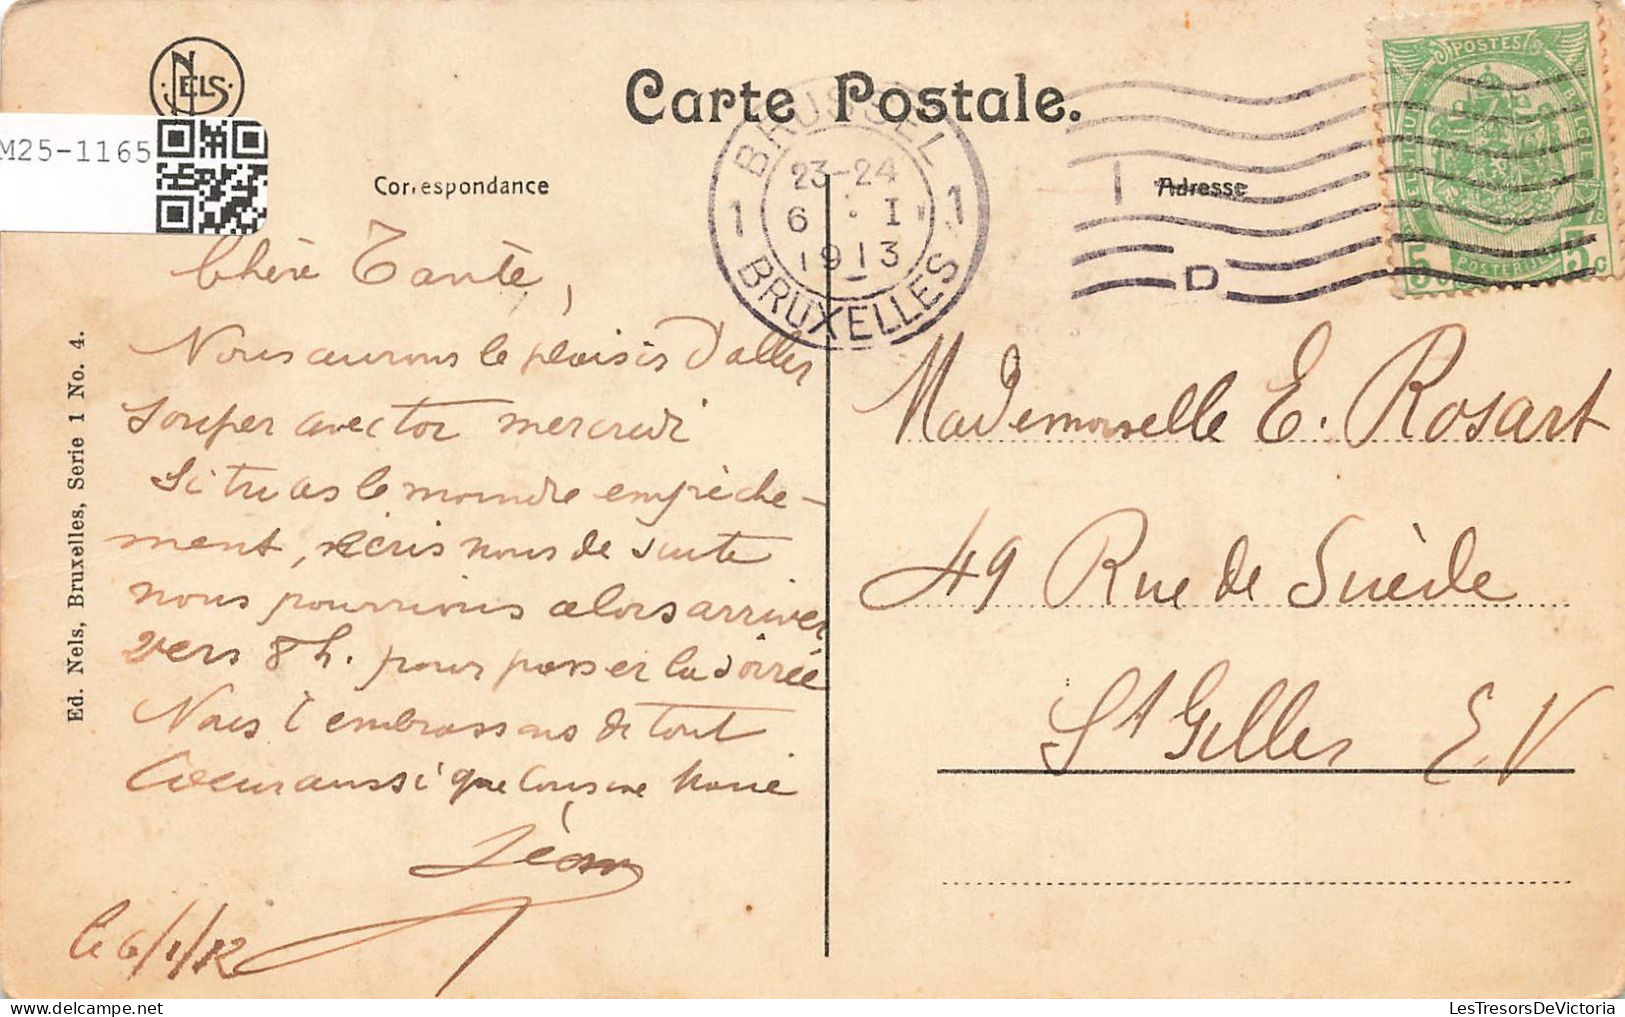 NELS
M25-1165
Carte Postale.
Correspondance
Adresse
BRUSSEL
23-24
1 6 · I 1
1913
BRUXELLES
D
POSTES
BELGIQUE
POSTERIJEN
5 c 5 c
Chère Tante,
Nous aurons le plaisir d'aller
souper avec toi mercredi
Si tu as le moindre empêche-
ment, écris nous de suite
nous pourrions alors arriver
vers 8 h. pour passer la soirée
Nous t'embrassons de tout
Coeur aussi que Cousine
Léon
Le 6/1/12
Mademoiselle E. Rosart
49 Rue de Suède
St Gilles E.V
Ed. Nels, Bruxelles, Serie 1 No. 4.
LesTresorsDeVictoria